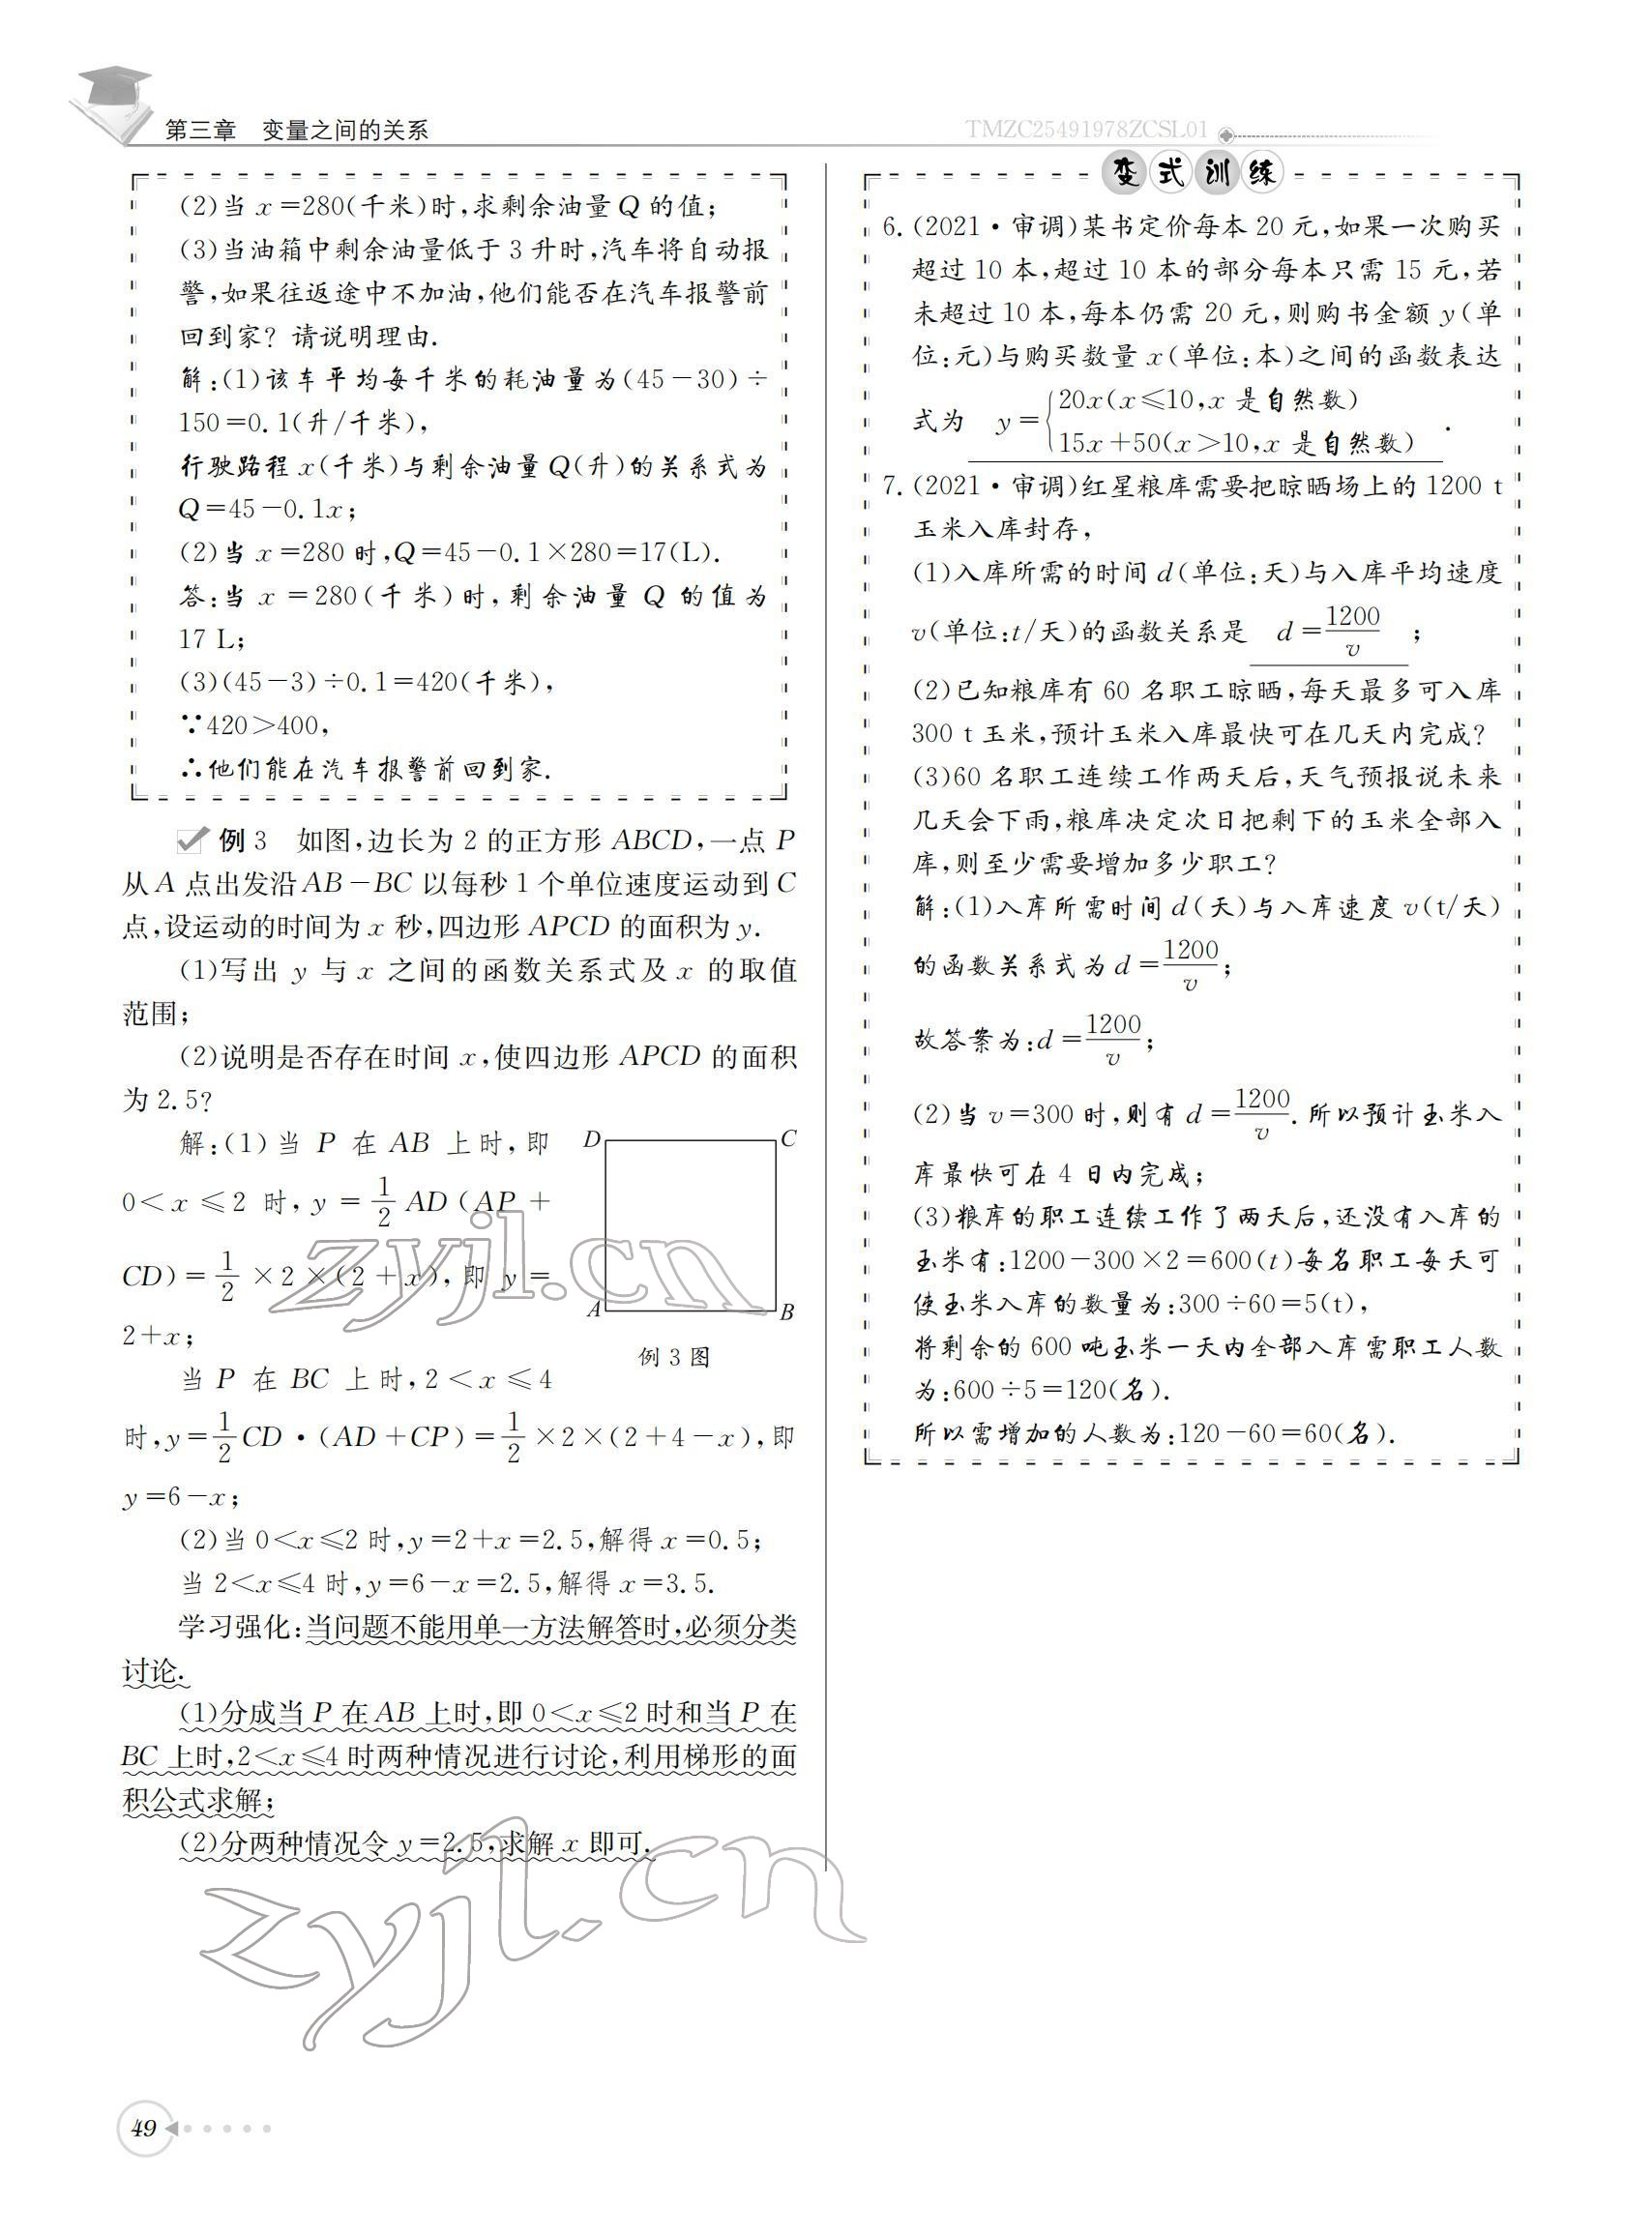 第三章　变量之间的关系
TMZC25491978ZCSL01
(2)当 x=280(千米)时,求剩余油量 Q 的值;
(3)当油箱中剩余油量低于 3 升时,汽车将自动报
警,如果往返途中不加油,他们能否在汽车报警前
回到家? 请说明理由.
解:(1)该车平均每千米的耗油量为(45-30)÷
150=0.1(升/千米),
行驶路程 x(千米)与剩余油量 Q(升)的关系式为
Q=45-0.1x;
(2)当 x=280 时,Q=45-0.1×280=17(L).
答:当 x=280(千米)时,剩余油量 Q 的值为
17 L;
(3)(45-3)÷0.1=420(千米),
∵420>400,
∴他们能在汽车报警前回到家.
例 3　如图,边长为 2 的正方形 ABCD,一点 P
从 A 点出发沿 AB-BC 以每秒 1 个单位速度运动到 C
点,设运动的时间为 x 秒,四边形 APCD 的面积为 y.
(1)写出 y 与 x 之间的函数关系式及 x 的取值
范围;
(2)说明是否存在时间 x,使四边形 APCD 的面积
为 2.5?
解:(1)当 P 在 AB 上时,即
0<x≤2 时,y=1/2 AD(AP+
CD)=1/2×2×(2+x),即 y=
2+x;
D C
A B
例 3 图
当 P 在 BC 上时,2<x≤4
时,y=1/2 CD·(AD+CP)=1/2×2×(2+4-x),即
y=6-x;
(2)当 0<x≤2 时,y=2+x=2.5,解得 x=0.5;
当 2<x≤4 时,y=6-x=2.5,解得 x=3.5.
学习强化:当问题不能用单一方法解答时,必须分类
讨论.
(1)分成当 P 在 AB 上时,即 0<x≤2 时和当 P 在
BC 上时,2<x≤4 时两种情况进行讨论,利用梯形的面
积公式求解;
(2)分两种情况令 y=2.5,求解 x 即可.
变式训练
6.(2021·审调)某书定价每本 20 元,如果一次购买
超过 10 本,超过 10 本的部分每本只需 15 元,若
未超过 10 本,每本仍需 20 元,则购书金额 y(单
位:元)与购买数量 x(单位:本)之间的函数表达
式为 y={20x(x≤10,x 是自然数)
15x+50(x>10,x 是自然数).
7.(2021·审调)红星粮库需要把晾晒场上的 1200 t
玉米入库封存,
(1)入库所需的时间 d(单位:天)与入库平均速度
v(单位:t/天)的函数关系是 d=1200/v ;
(2)已知粮库有 60 名职工晾晒,每天最多可入库
300 t 玉米,预计玉米入库最快可在几天内完成?
(3)60 名职工连续工作两天后,天气预报说未来
几天会下雨,粮库决定次日把剩下的玉米全部入
库,则至少需要增加多少职工?
解:(1)入库所需时间 d(天)与入库速度 v(t/天)
的函数关系式为 d=1200/v;
故答案为:d=1200/v;
(2)当 v=300 时,则有 d=1200/v.所以预计玉米入
库最快可在 4 日内完成;
(3)粮库的职工连续工作了两天后,还没有入库的
玉米有:1200-300×2=600(t)每名职工每天可
使玉米入库的数量为:300÷60=5(t),
将剩余的 600 吨玉米一天内全部入库需职工人数
为:600÷5=120(名).
所以需增加的人数为:120-60=60(名).
zyjl.cn
zyjl.cn
49